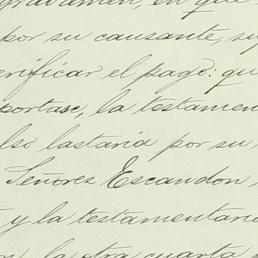 gravamen, en que
por su causante, su
erificar el pago: que
portase, la testamen
lso lastaria por su
Señores Escandon,
y la testamentaria
la otra cuarta